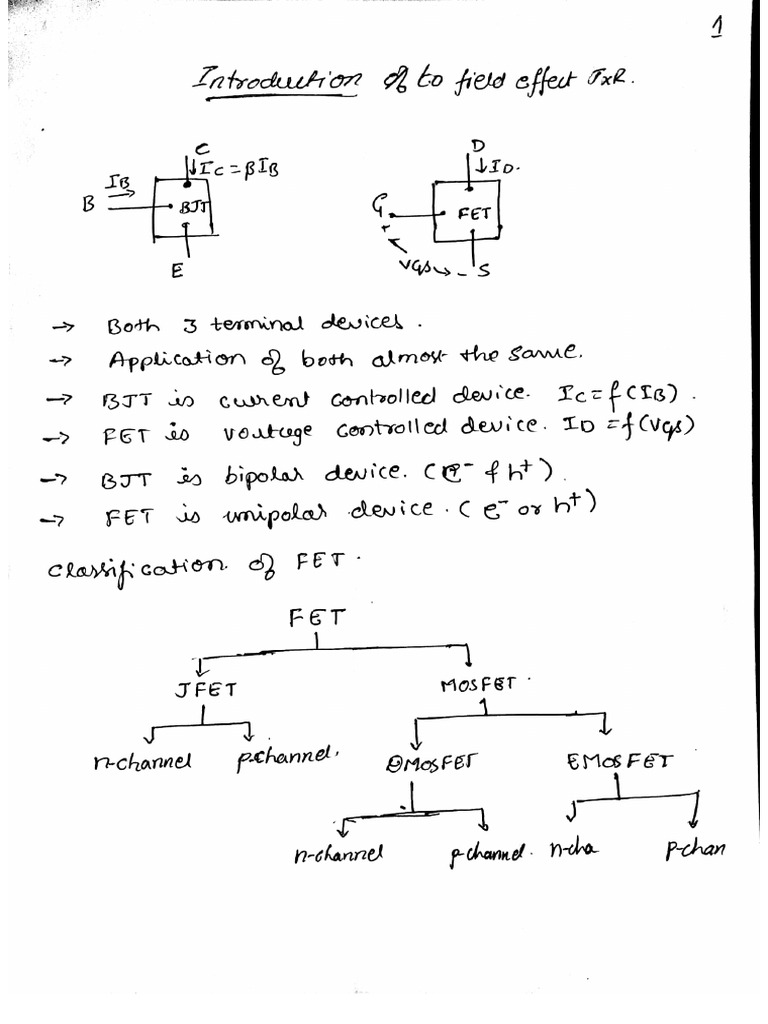 1
Introduction of to field effect TxR.
C
IC = βIB
IB
B
BJT
E
D
ID.
G
FET
VGS
-
S
→ Both 3 terminal devices.
→ Application of both almost the same.
→ BJT is current controlled device. IC = f(IB).
→ FET is voltage controlled device. ID = f(VGS)
→ BJT is bipolar device. (e⁻ & h⁺).
→ FET is unipolar device. (e⁻ or h⁺)
Classification of FET.
FET
JFET MOSFET
n-channel p-channel. DMOSFET EMOSFET
n-channel p-channel. n-cha p-chan